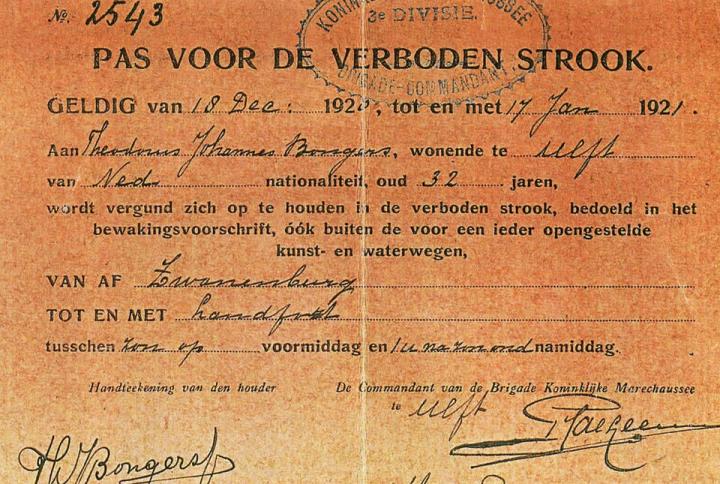 No. 2543
KONINKLIJKE MARECHAUSSEE
3e DIVISIE.
BRIGADE-COMMANDANT
PAS VOOR DE VERBODEN STROOK.
GELDIG van 18 Dec: 1920, tot en met 17 Jan 1921.
Aan Theodorus Johannes Bongers, wonende te Ulft
van Ned nationaliteit, oud 32 jaren,
wordt vergund zich op te houden in de verboden strook, bedoeld in het
bewakingsvoorschrift, óók buiten de voor een ieder opengestelde
kunst- en waterwegen,
VAN AF Zwanenburg
TOT EN MET Landfort
tusschen zon op voormiddag en 1 u na zonond namiddag.
Handteekening van den houder De Commandant van de Brigade Koninklijke Marechaussee
te Ulft
Th J Bongers